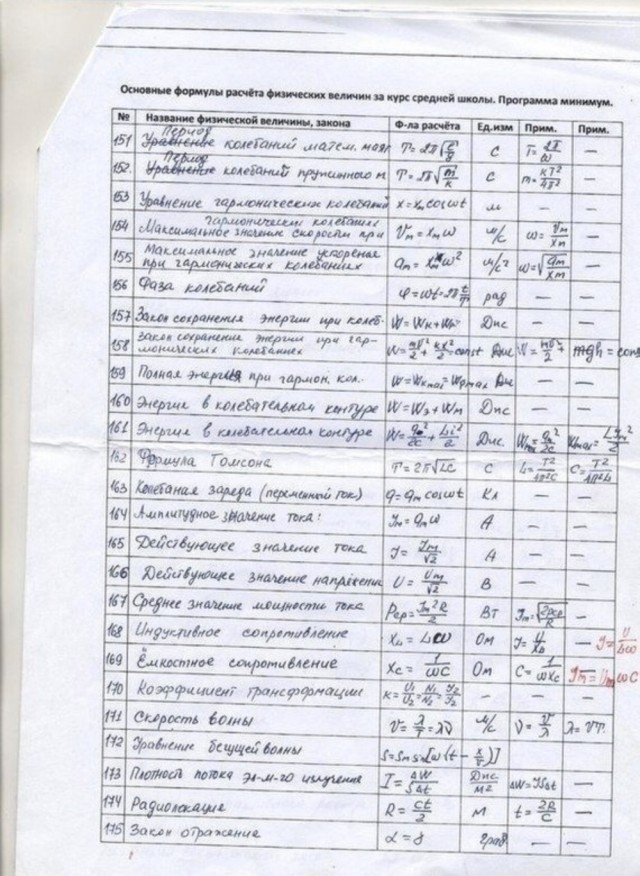 Основные формулы расчёта физических величин за курс средней школы. Программа минимум.
№ Название физической величины, закона Ф-ла расчёта Ед.изм Прим. Прим.
Период
151 Уравнение колебаний матем. маят T=2π√(ℓ/g) с T=2π/ω —
Период
152. Уравнение колебаний пружинного м T=2π√(m/k) с m=kT²/4π² —
153 Уравнение гармонических колебаний x=xₘcosωt м — —
гармонических колебаниях
154 Максимальное значение скорости при Vₘ=xₘω м/с ω=Vₘ/xₘ —
155 Максимальное значение ускорения aₘ=xₘω² м/с² ω=√(aₘ/xₘ) —
при гармонических колебаниях
156 Фаза колебаний φ=ωt=2π t/T рад — —
157 Закон сохранения энергии при колеб. W=Wк+Wр Дж — —
158 Закон сохранения энергии при гар- W=mV²/2+kx²/2=const Дж W=mV²/2+ mgh=cons
монических колебаниях
159 Полная энергия при гармон. кол. W=Wкmax=Wрmax Дж — —
160 Энергия в колебательном контуре W=Wэ+Wм Дж — —
161 Энергия в колебательном контуре W=qₘ²/2C+Li²/2 Дж
162 Формула Томсона T=2π√LC с L=T²/4π²C C=T²/4π²L
163 Колебания заряда (переменный ток) q=qₘcosωt Кл — —
164 Амплитудное значение тока: Iₘ=qₘω А — —
165 Действующее значение тока I=Iₘ/√2 А — —
166 Действующее значение напряжения U=Uₘ/√2 В — —
167 Среднее значение мощности тока Pср=Iₘ²R/2 Вт Iₘ=√(2Pср/R) —
168 Индуктивное сопротивление X_L=Lω Ом I=U/X_L — I=U/Lω
169 Ёмкостное сопротивление Xc=1/ωC Ом C=1/ωXc Iₘ=UₘωC
170 Коэффициент трансформации K=U₁/U₂=N₁/N₂=I₂/I₁ — —
171 Скорость волны V=λ/T=λν м/с ν=V/λ λ=VT.
172 Уравнение бегущей волны S=Sₘsin[ω(t−x/v)]
173 Плотность потока эл-м-го излучения I=ΔW/SΔt Дж/м² ΔW=ISΔt —
174 Радиолокация R=ct/2 м t=2R/C —
175 Закон отражения α=γ град. — —